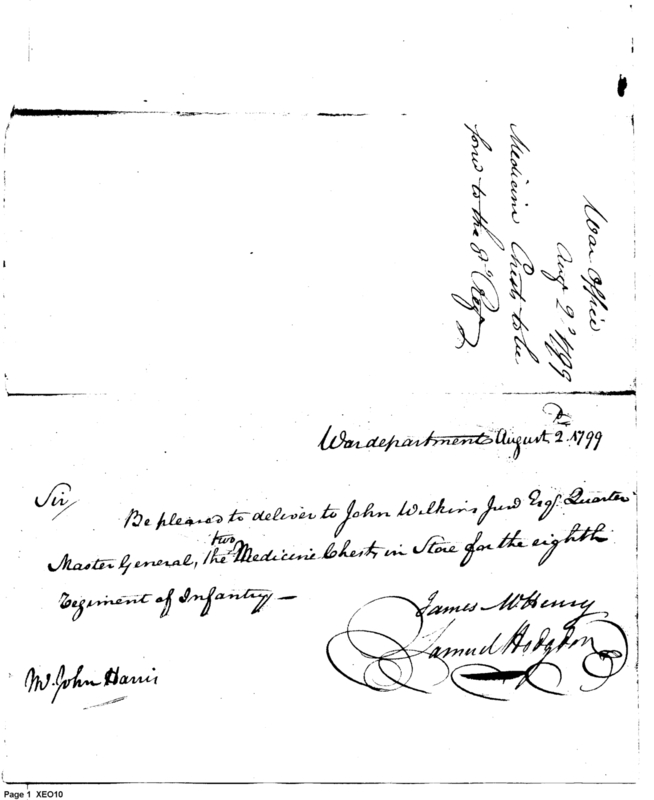 War Office
Aug 2d 1799
Medicine Chests to be
forwd to the 8th Reg
War department August 2. 1799
Sir,
Be pleased to deliver to John Wilkins Junr Esqr. Quarter
Master General, the two Medicine Chests in Store for the eighth
Regiment of Infantry —
James McHenry
Samuel Hodgdon
Mr. John Harris
Page 1 XEO10